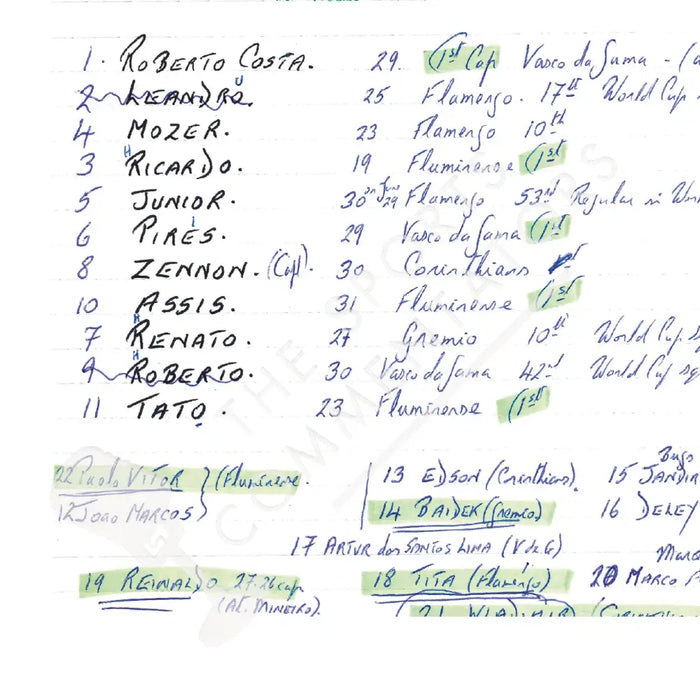 1. ROBERTO COSTA. 29. (1st Cap Vasco da Gama - (
2 LEANDRO. 25 Flamengo. 17th World Cup
4 MOZER. 23 Flamengo 10th
3 RICARDO. 19 Fluminense (1st
5 JUNIOR. 30 on June 29 Flamengo 53rd Regular in Wor
6 PIRES. 29 Vasco da Gama (1st
8 ZENNON. (Capt). 30 Corinthians
10 ASSIS. 31 Fluminense (1st
7 RENATO. 27 Gremio 10th World Cup s
9 ROBERTO. 30 Vasco da Gama 42nd World Cup sq
11 TATO. 23 Fluminense (1st
22 Paulo VITOR } (Fluminense.
12 Joao MARCOS
13 EDSON (Corinthians).
14 BAIDEK (Gremio)
15 JANDIR
16 DELEY
17 ARTUR dos SANTOS LIMA (V de G)
19 REINALDO 27. 26 cap
(AT. MINEIRO).
18 TITA (Flamengo)
20 MARCO
21 WLADIMIR (Corinthian
THE SPORTS
COMMENTATORS